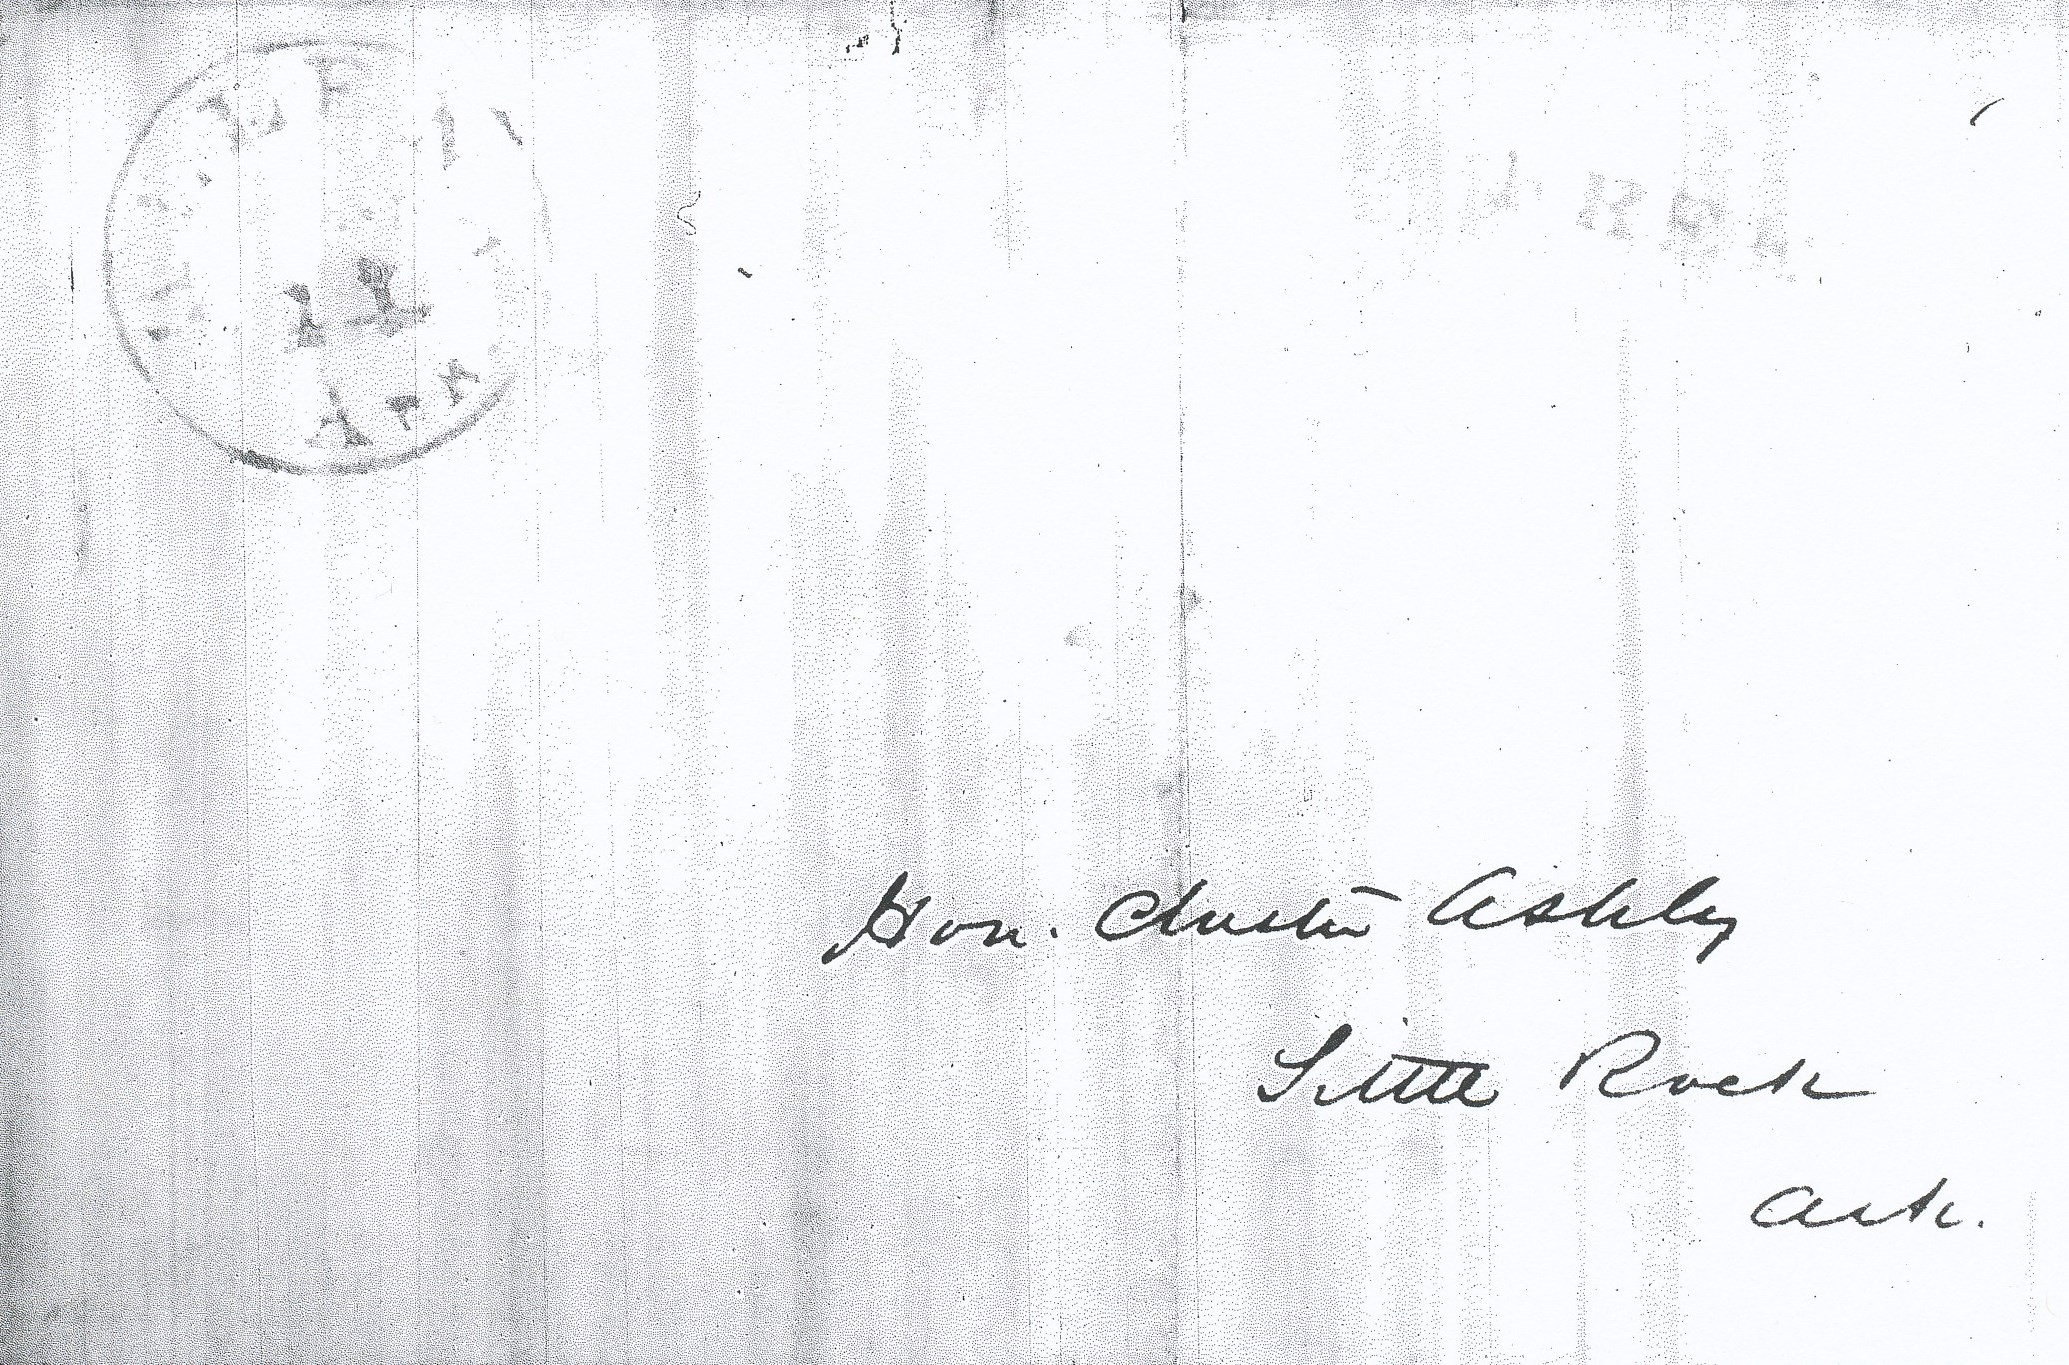 11
Ark
FREE
Hon. Chester Ashley
Little Rock
Ark.